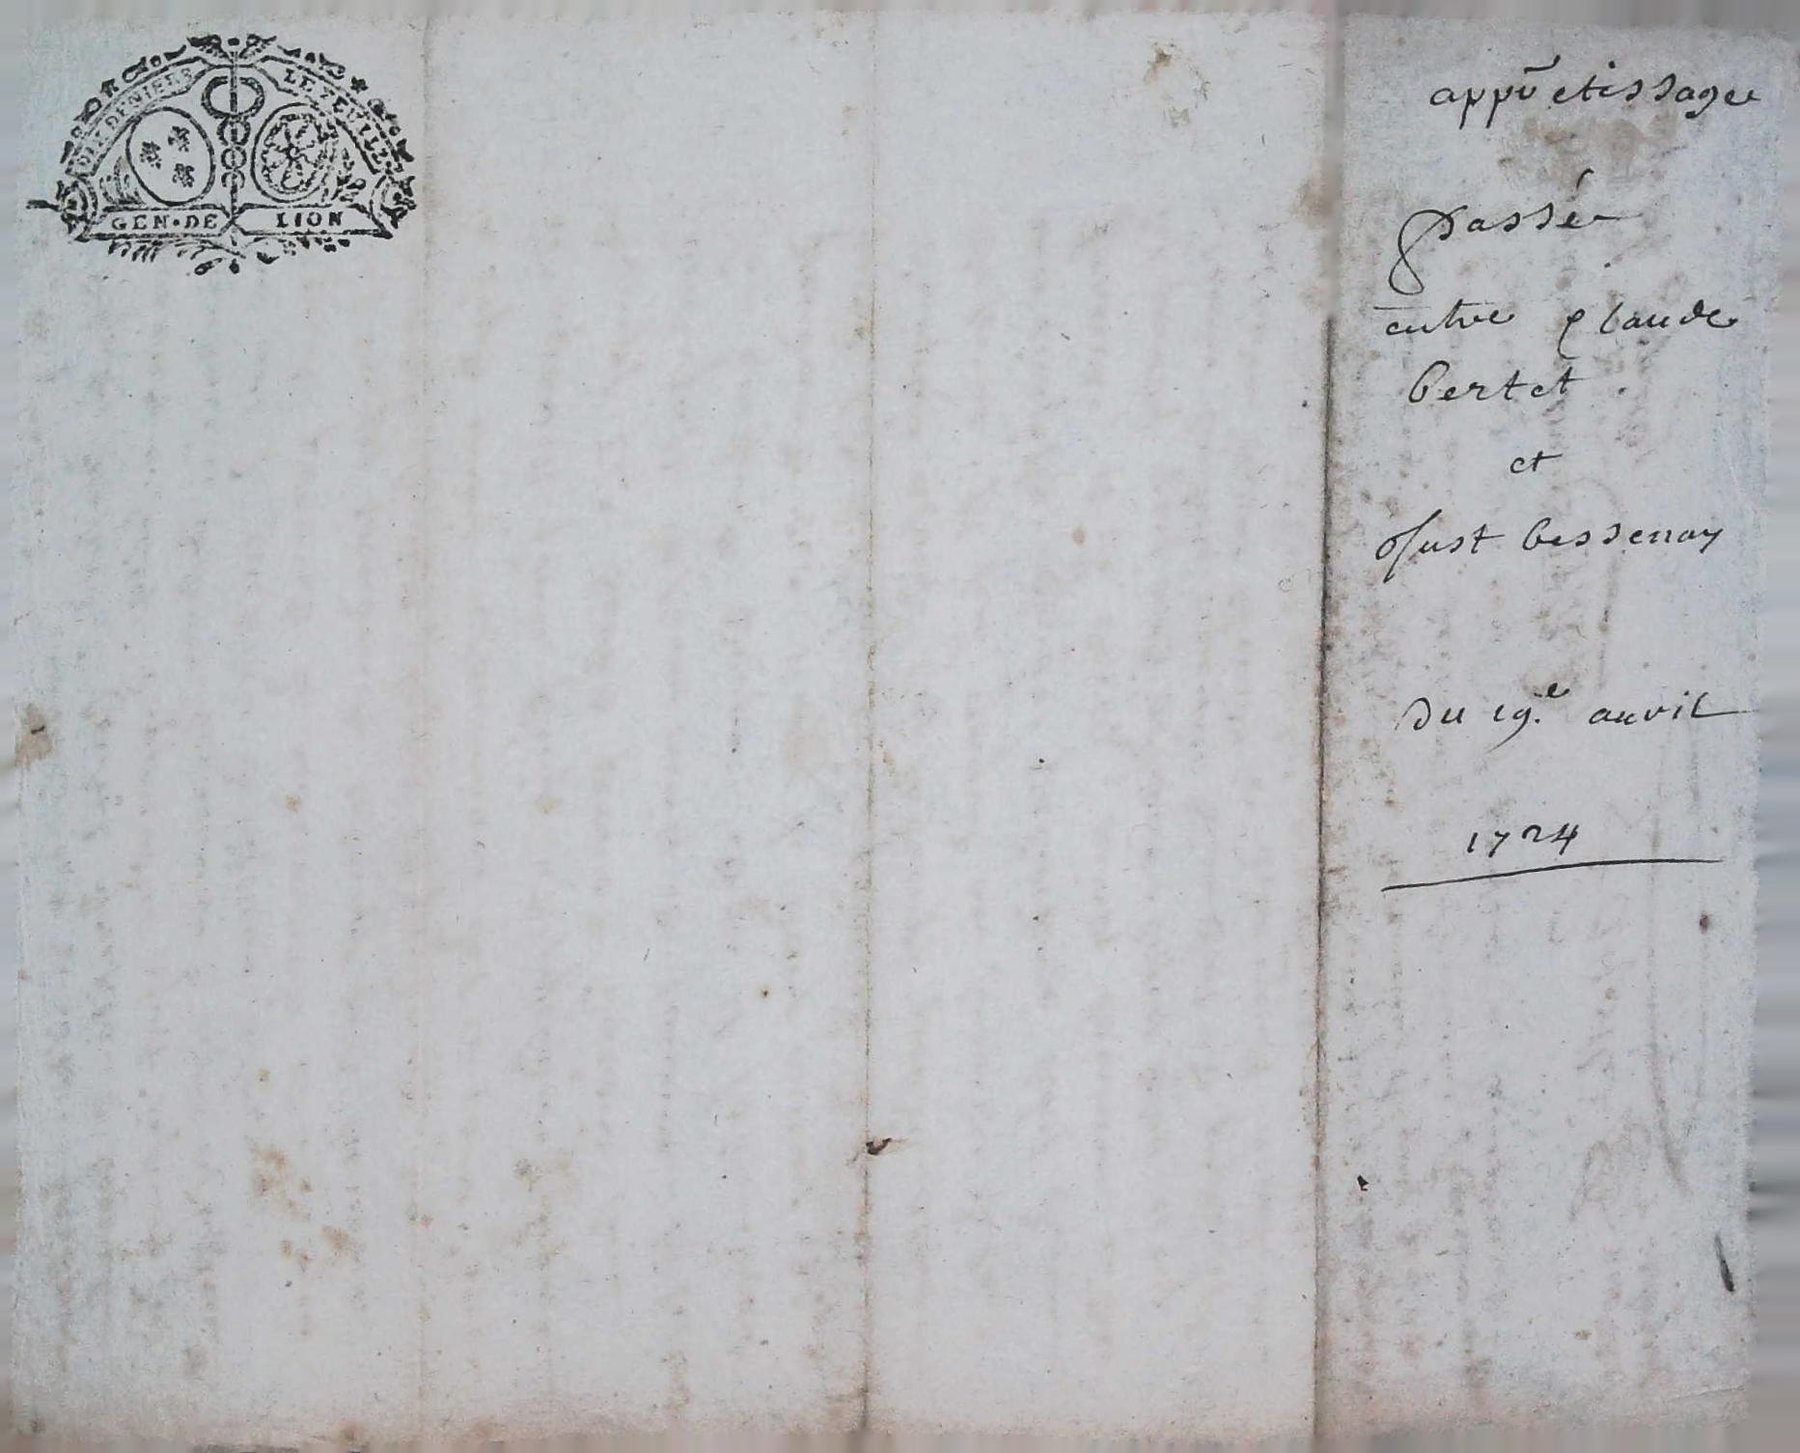 DIX DENIERS
LE FEUILLE
GEN·DE LION
appr̄etissage
passé
entre Claude
bertet
et
Just bessenay
du 19.e auril
1724